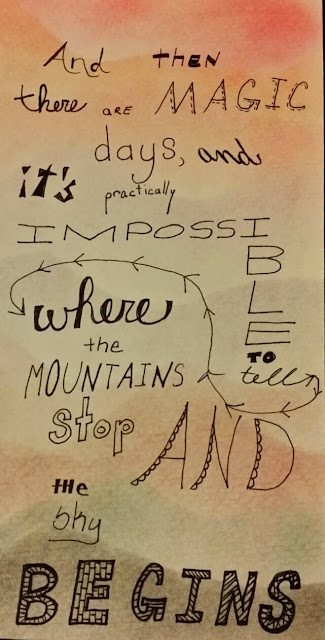 And THEN
there ARE MAGIC
days, and
iT's practically
IMPOSSIBLE
TO tell
where
the
MOUNTAINS
stop AND
the
sky
BEGINS